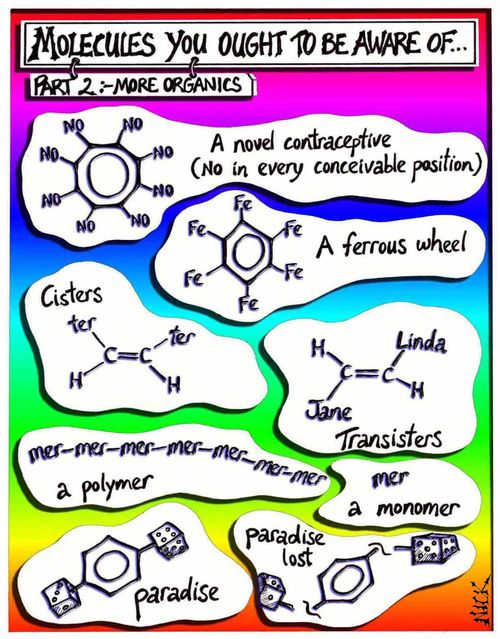 MOLECULES YOU OUGHT TO BE AWARE OF...
PART 2:-MORE ORGANICS
NO NO
NO NO
NO NO
NO NO
A novel contraceptive
(No in every conceivable position)
Fe
Fe Fe
Fe Fe
Fe
A ferrous wheel
Cisters
ter ter
C=C
H H
H Linda
C=C
Jane H
Transisters
mer-mer-mer-mer-mer-mer-mer
a polymer
mer
a monomer
paradise
paradise
lost
NICK